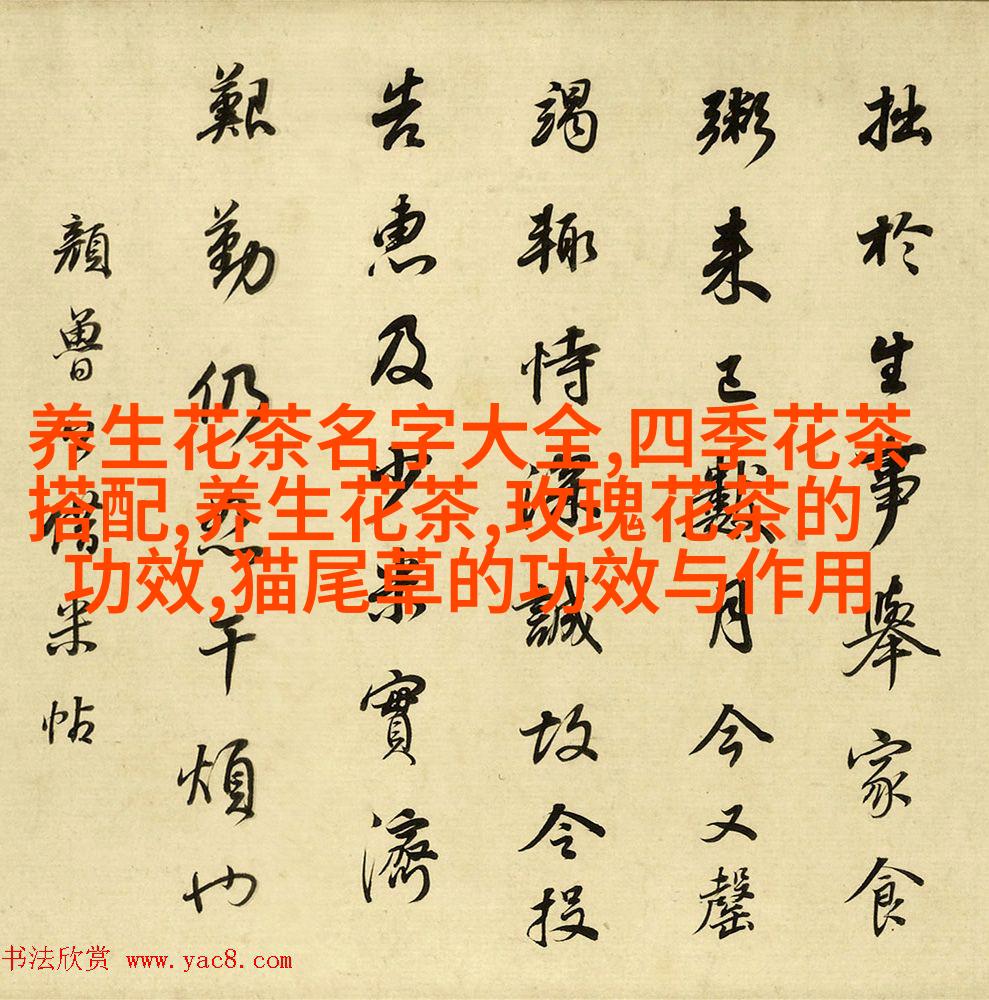 拙於生事舉家食
粥来已數月今又罄
竭輒恃深誠故令投
告惠及少米實濟
艱勤仍恕干煩也
顏魯公借米帖
养生花茶名字大全,四季花茶
搭配,养生花茶,玫瑰花茶的
功效,猫尾草的功效与作用
书法欣赏 www.yac8.com